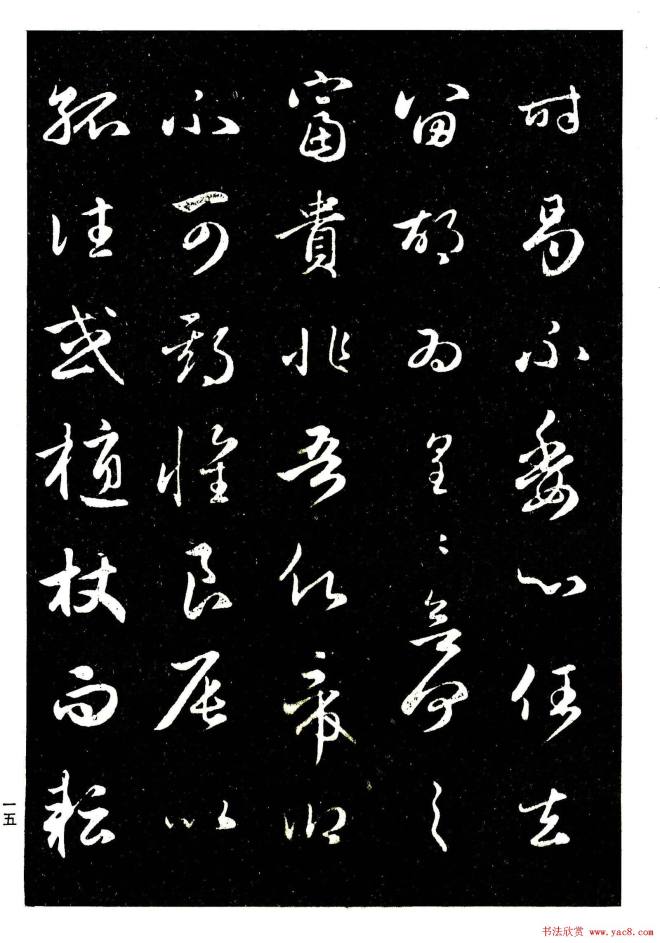 時曷不委心任去
留胡為皇〻何之
富貴非吾願帝鄉
不可期懷良辰以
孤往或植杖而耘
一五
书法欣赏 www.yac8.com